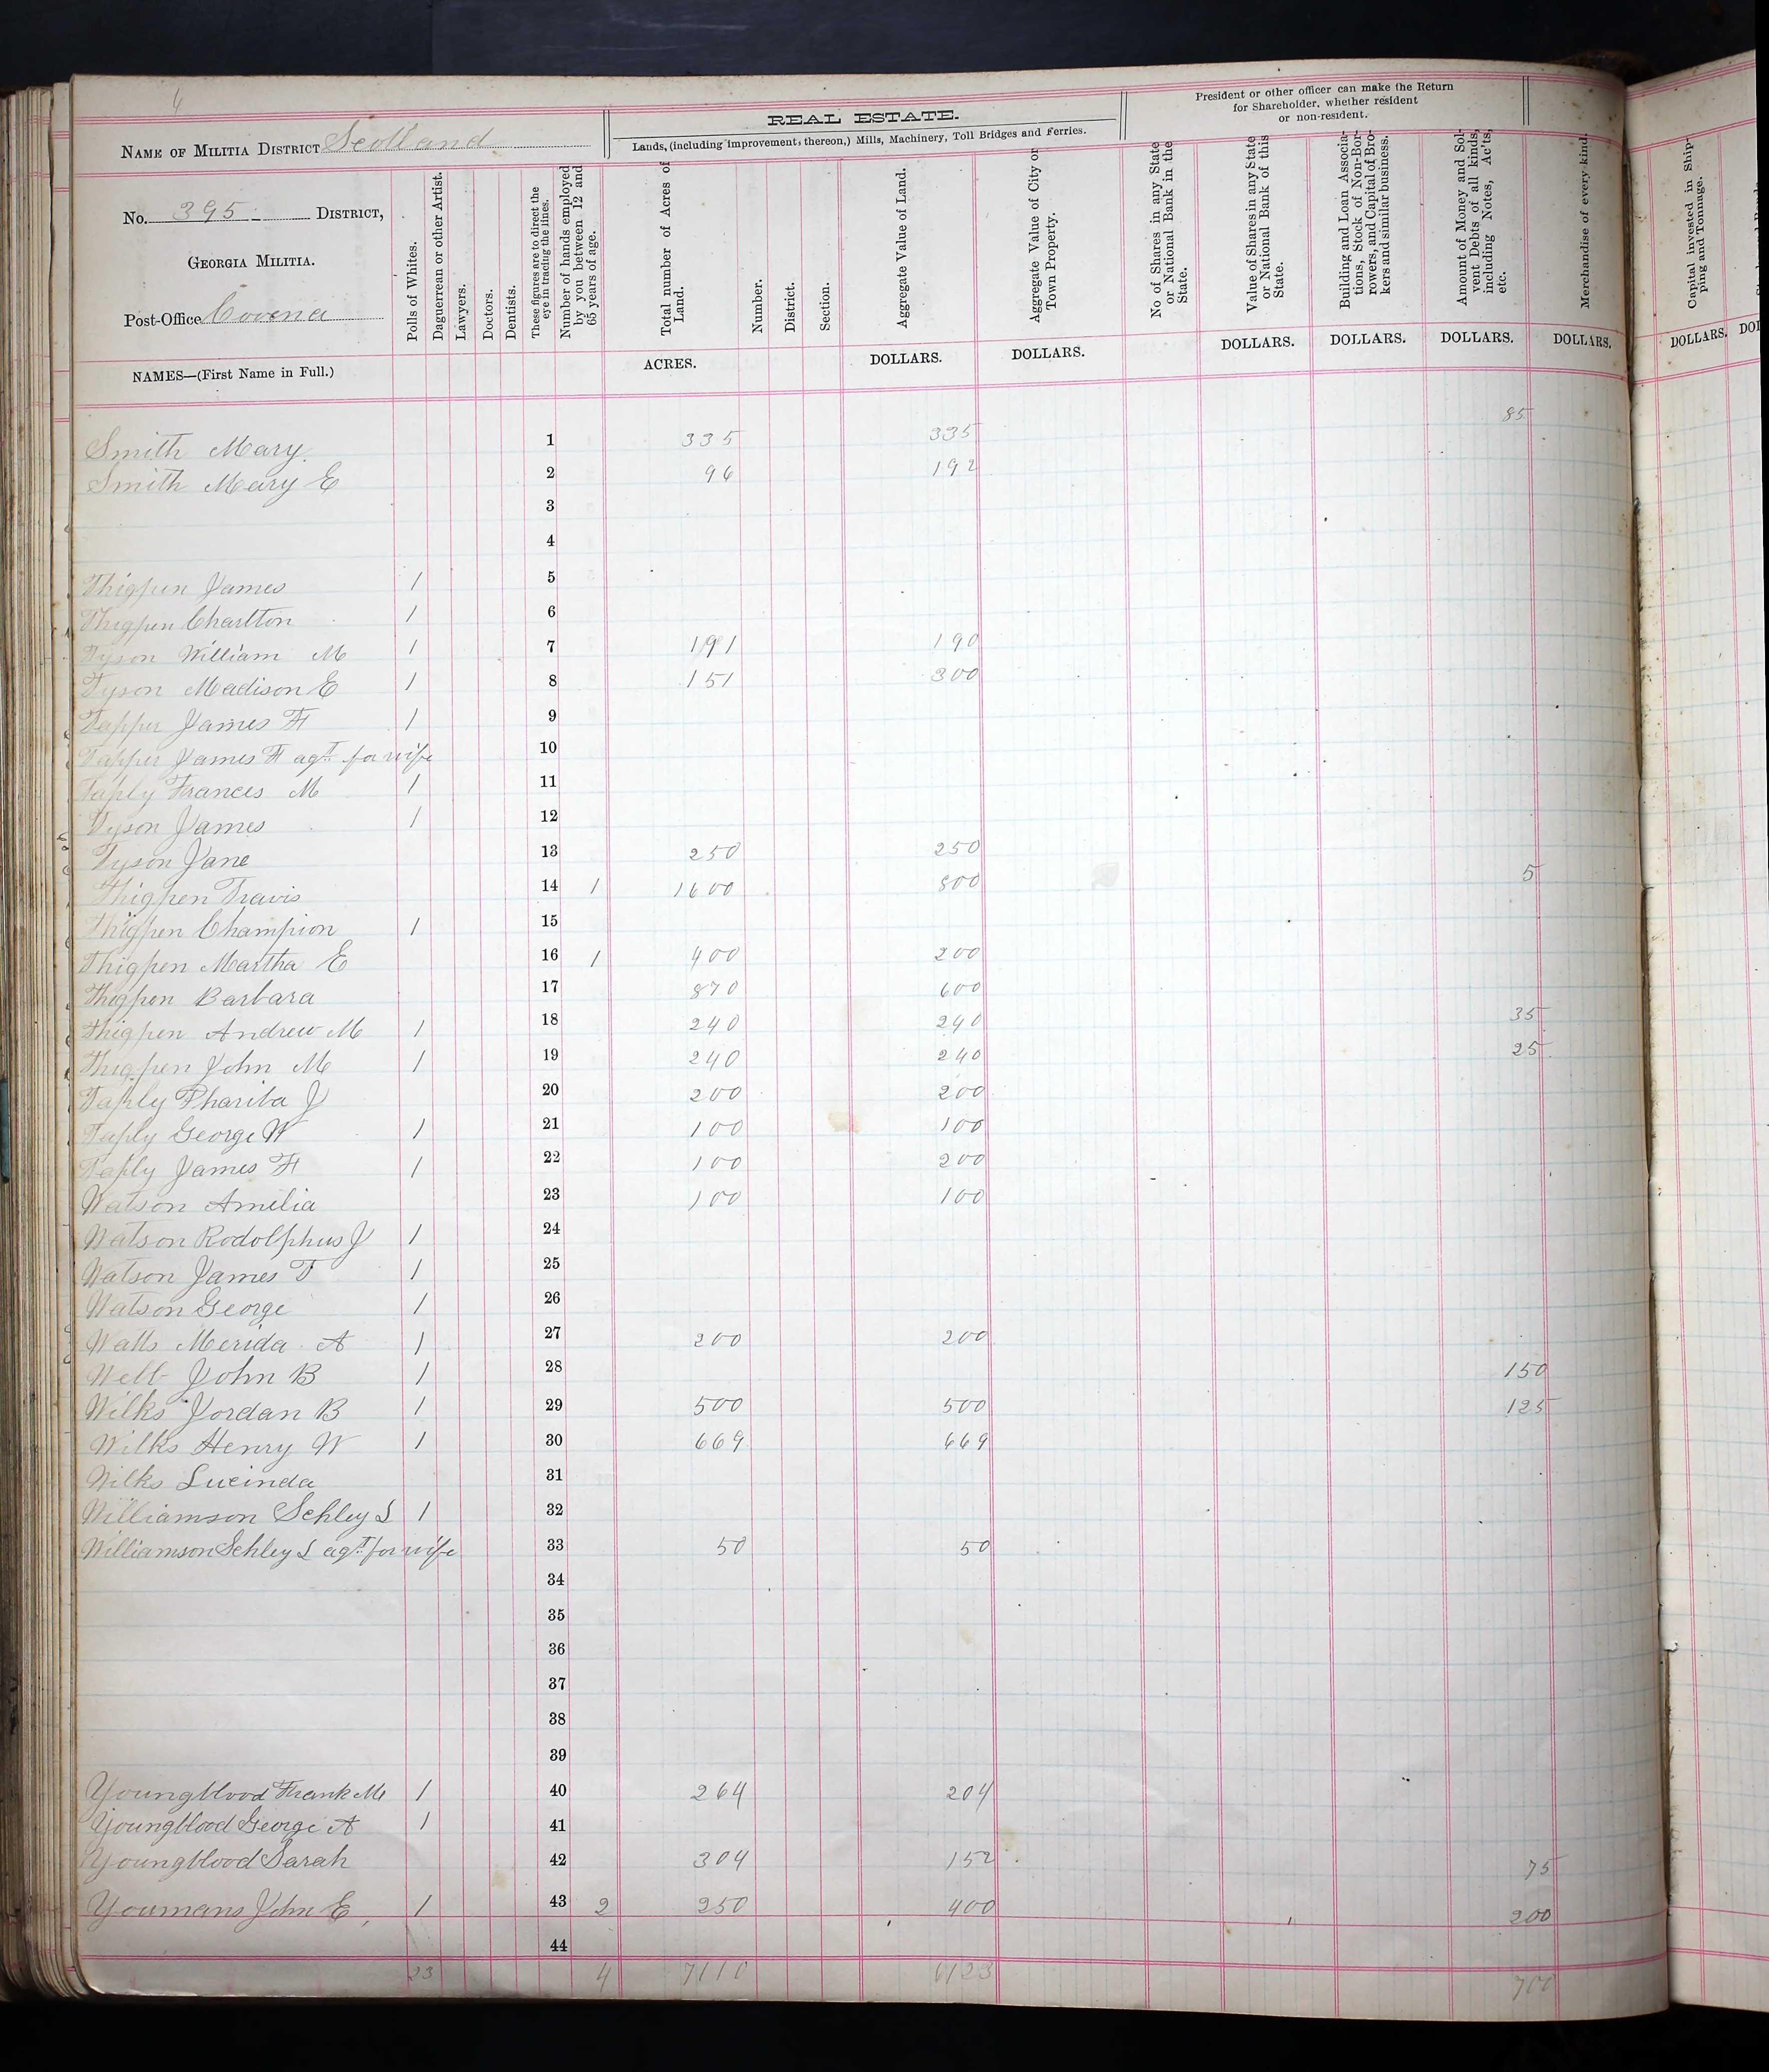 4
NAME OF MILITIA DISTRICT Scotland
No. 395 DISTRICT,
GEORGIA MILITIA.
Post-Office Covena
NAMES—(First Name in Full.)
Polls of Whites.
Daguerrean or other Artist.
Lawyers.
Doctors.
Dentists.
These figures are to direct the eye in tracing the lines.
Number of hands employed by you between 12 and 65 years of age.
REAL ESTATE.
Lands, (including improvements thereon,) Mills, Machinery, Toll Bridges and Ferries.
Total number of Acres of Land.
ACRES.
Number.
District.
Section.
Aggregate Value of Land.
DOLLARS.
Aggregate Value of City or Town Property.
DOLLARS.
President or other officer can make the Return
for Shareholder, whether resident
or non-resident.
No of Shares in any State or National Bank in the State.
Value of Shares in any State or National Bank of this State.
DOLLARS.
Building and Loan Associations, Stock of Non-Borrowers, and Capital of Brokers and similar business.
DOLLARS.
Amount of Money and Solvent Debts of all kinds, including Notes, Ac'ts, etc.
DOLLARS.
Merchandise of every kind.
DOLLARS.
Capital invested in Shipping and Tonnage.
DOLLARS.
Smith Mary 1 335 335 85
Smith Mary E 2 96 192
3
4
Thigpen James 1 5
Thigpen Charlton 1 6
Tyson William M 1 7 191 190
Tyson Madison E 1 8 151 300
Tapper James F 1 9
Tapper James F agt for wife 10
Taply Frances M 1 11
Tyson James 1 12
Tyson Jane 13 250 250
Thigpen Travis 14 1 1600 800 5
Thigpen Champion 1 15
Thigpen Martha E 16 1 400 200
Thigpen Barbara 17 870 600
Thigpen Andrew M 1 18 240 240 35
Thigpen John M 1 19 240 240 25
Taply Phariba J 20 200 200
Taply George W 1 21 100 100
Taply James F 1 22 100 200
Watson Amelia 23 100 100
Watson Rodolphus J 1 24
Watson James T 1 25
Watson George 1 26
Watts Merida A 1 27 200 200
Webb John B 1 28 150
Wilks Jordan B 1 29 500 500 125
Wilks Henry W 1 30 669 669
Wilks Lucinda 31
Williamson Schley L 1 32
Williamson Schley L agt for wife 33 50 50
34
35
36
37
38
39
Youngblood Frank M 1 40 264 204
Youngblood George A 1 41
Youngblood Sarah 42 304 152 75
Youmans John E 1 43 2 250 400 200
44
23 4 7110 6123 700